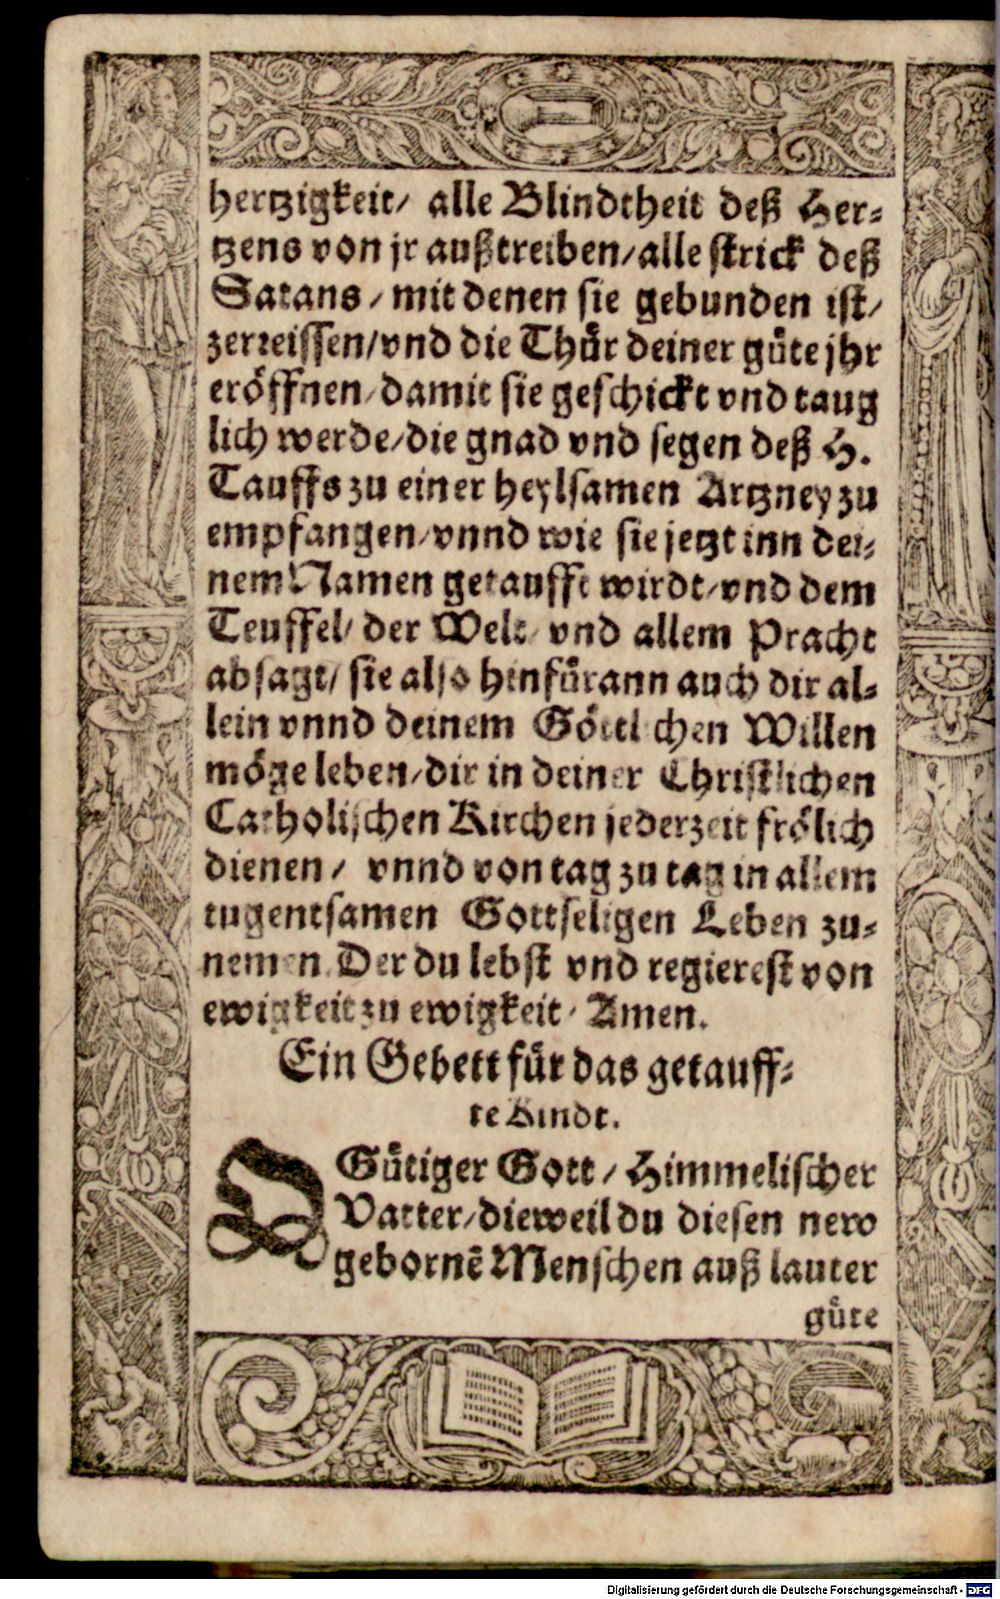 hertzigkeit/ alle Blindtheit deß Her⸗
tzens von jr außtreiben/alle strick deß
Satans / mit denen sie gebunden ist/
zerreissen/vnd die Thuͤr deiner guͤte jhr
eröffnen/damit sie geschickt vnd taug
lich werde/die gnad vnd segen deß H.
Tauffs zu einer heylsamen Artzney zu
empfangen/vnnd wie sie jetzt inn dei⸗
nem Namen getaufft wirdt/vnd dem
Teuffel/ der Welt/ vnd allem Pracht
absagt/ sie also hinfuͤrann auch dir al⸗
lein vnnd deinem Göttlichen Willen
möge leben/dir in deiner Christlichen
Catholischen Kirchen jederzeit frölich
dienen/ vnnd von tag zu tag in allem
tugentsamen Gottseligen Leben zu⸗
nemen. Der du lebst vnd regierest von
ewigkeit zu ewigkeit/ Amen.
Ein Gebett fuͤr das getauff⸗
te Kindt.
O Guͤtiger Gott / Himmelischer
Vatter/dieweil du diesen new
gebornē Menschen auß lauter
guͤte
Digitalisierung gefördert durch die Deutsche Forschungsgemeinschaft - DFG